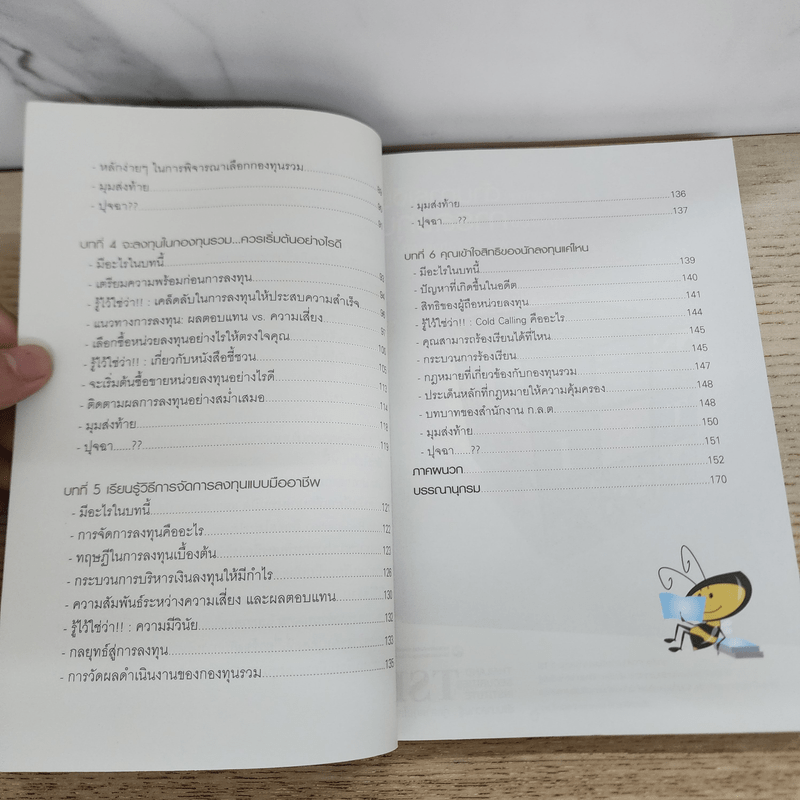 - หลักง่ายๆ ในการพิจารณาเลือกกองทุนรวม
- มุมส่งท้าย
- ปุจฉา??
บทที่ 4 จะลงทุนในกองทุนรวม...ควรเริ่มต้นอย่างไรดี
- มีอะไรในบทนี้ 93
- เตรียมความพร้อมก่อนการลงทุน 94
- รู้ไว้ใช่ว่า!! : เคล็ดลับในการลงทุนให้ประสบความสำเร็จ 96
- แนวทางการลงทุน: ผลตอบแทน vs. ความเสี่ยง 97
- เลือกซื้อหน่วยลงทุนอย่างไรให้ตรงใจคุณ
- รู้ไว้ใช่ว่า!! : เกี่ยวกับหนังสือชี้ชวน
- จะเริ่มต้นซื้อขายหน่วยลงทุนอย่างไรดี
- ติดตามผลการลงทุนอย่างสม่ำเสมอ 114
- มุมส่งท้าย 118
- ปุจฉา......?? 119
บทที่ 5 เรียนรู้วิธีการจัดการลงทุนแบบมืออาชีพ
- มีอะไรในบทนี้ 121
- การจัดการลงทุนคืออะไร 122
- ทฤษฎีในการลงทุนเบื้องต้น 123
- กระบวนการบริหารเงินลงทุนให้มีกำไร 126
- ความสัมพันธ์ระหว่างความเสี่ยง และผลตอบแทน 130
- รู้ไว้ใช่ว่า!! : ความมีวินัย 132
- กลยุทธ์สู่การลงทุน 133
- การวัดผลดำเนินงานของกองทุนรวม 135
- มุมส่งท้าย 136
- ปุจฉา......?? 137
บทที่ 6 คุณเข้าใจสิทธิของนักลงทุนแค่ไหน
- มีอะไรในบทนี้ 139
- ปัญหาที่เกิดขึ้นในอดีต 140
- สิทธิของผู้ถือหน่วยลงทุน 141
- รู้ไว้ใช่ว่า!! : Cold Calling คืออะไร 144
- คุณสามารถร้องเรียนได้ที่ไหน 145
- กระบวนการร้องเรียน 145
- กฎหมายที่เกี่ยวข้องกับกองทุนรวม 147
- ประเด็นหลักที่กฎหมายให้ความคุ้มครอง 148
- บทบาทของสำนักงาน ก.ล.ต. 148
- มุมส่งท้าย 150
- ปุจฉา......?? 151
ภาคผนวก 152
บรรณานุกรม 170